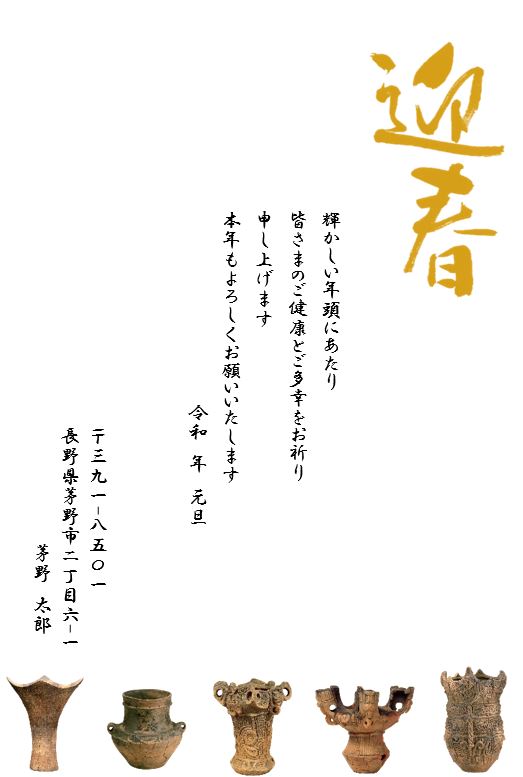 迎春
輝かしい年頭にあたり
皆さまのご健康とご多幸をお祈り
申し上げます
本年もよろしくお願いいたします
令和　年　元旦
〒三九一-八五〇一
長野県茅野市二丁目六-一
茅野　太郎